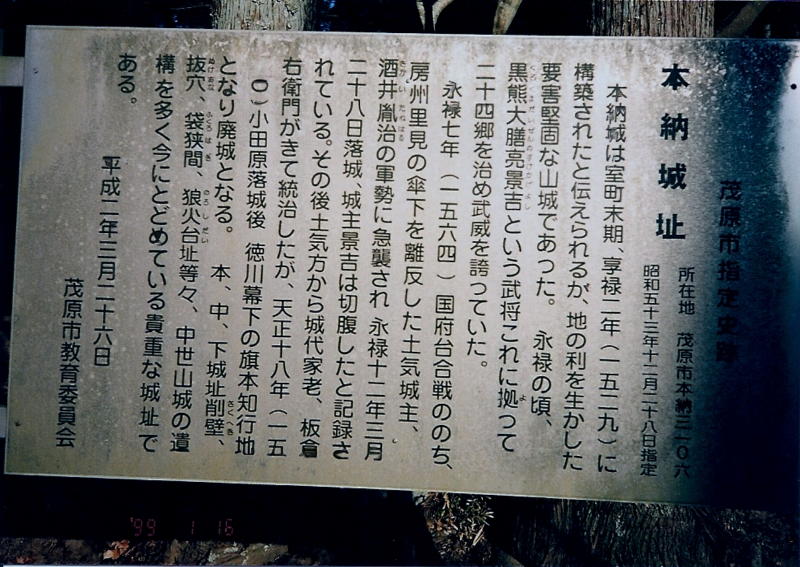 茂原市指定史跡
本納城址
所在地　茂原市本納三一〇六
昭和五十三年十二月二十八日指定
本納城は室町末期、享禄二年（一五二九）に
構築されたと伝えられるが、地の利を生かした
要害堅固な山城であった。　永禄の頃、
黒熊大膳亮景吉という武将これに拠って
二十四郷を治め武威を誇っていた。
永禄七年（一五六四）国府台合戦ののち、
房州里見の傘下を離反した土気城主、
酒井胤治の軍勢に急襲され　永禄十二年三月
二十八日落城、城主景吉は切腹したと記録さ
れている。その後土気方から城代家老、板倉
右衛門がきて統治したが、天正十八年（一五
〇）小田原落城後　徳川幕下の旗本知行地
となり廃城となる。　本、中、下城址削壁、
抜穴、袋狭間、狼火台址等々、中世山城の遺
構を多く今にとどめている貴重な城址で
ある。
平成二年三月二十六日
茂原市教育委員会
'99 1 16